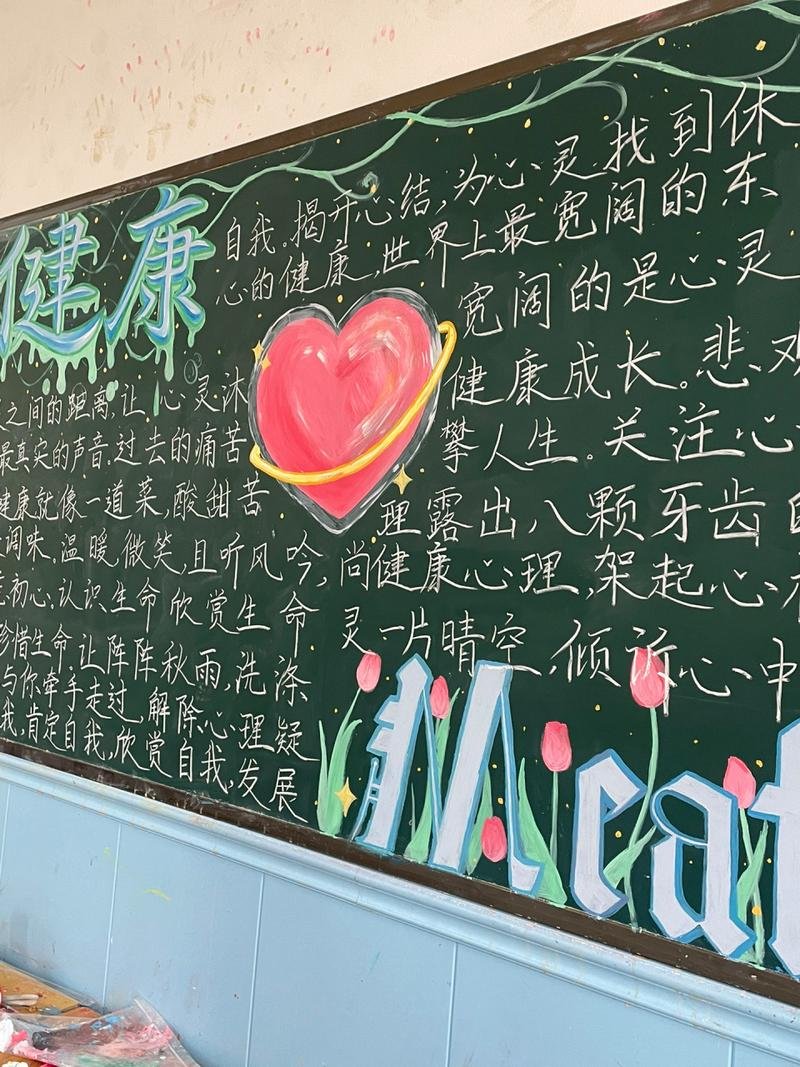 健康
之间的距离,让心灵沐
最真实的声音。过去的痛苦
健康就像一道菜,酸甜苦
调味。温暖微笑,且听风吟,
初心。认识生命欣赏生命
珍惜生命,让阵阵秋雨,洗涤
与你牵手走过,解除心理疑
我,肯定自我,欣赏自我,发展
自我。揭开心结,为心灵找到休
心的健康,世界上最宽阔的东
宽阔的是心灵
健康成长。悲观
攀人生。关注心
理露出八颗牙齿的
尚健康心理,架起心
灵一片晴空,倾诉心中
Meat